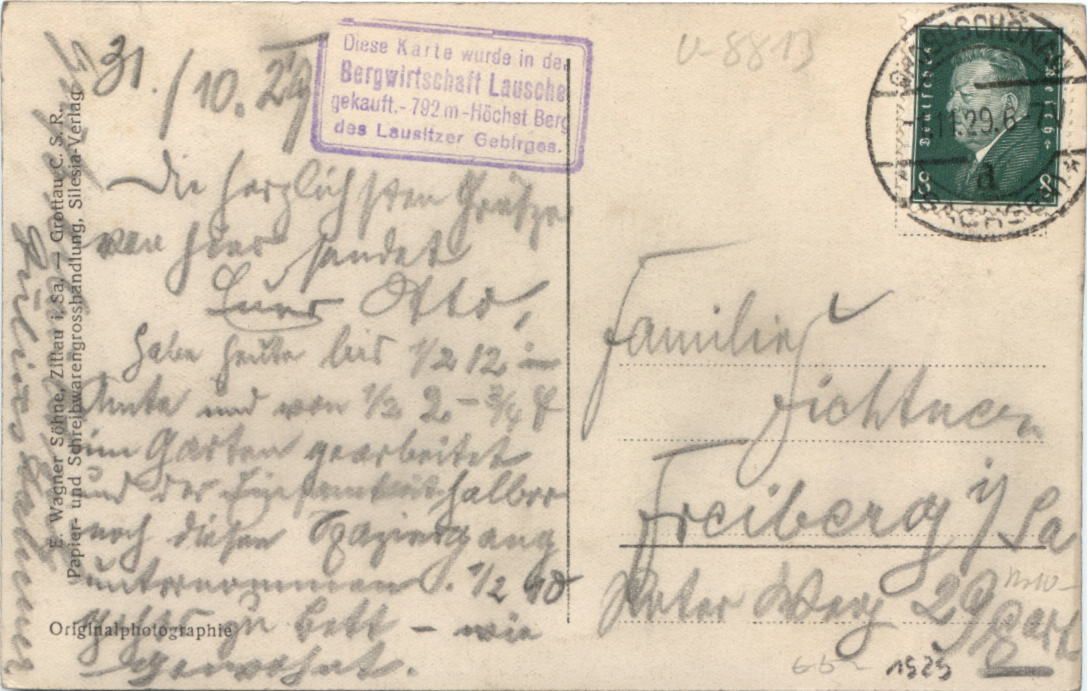 31./10.29
Diese Karte wurde in der
Bergwirtschaft Lausche
gekauft.- 792 m - Höchst Berg
des Lausitzer Gebirges.
v-8813
Die herzlichsten Grüsse
von hier sendet
Euer Otto,
habe heute bis 1/2 12 im
Amte und von 1/2 2 - 3/4 4
im Garten gearbeitet
und der halber
noch diesen Spaziergang
unternommen. 1/2 10
gehts zu Bett - wie
gewohnt.
E. Wagner Söhne, Zittau i. Sa. — Grottau C. S. R.
Papier- und Schreibwarengrosshandlung, Silesia-Verlag
Originalphotographie
GROSSSCHÖNAU
1.11.29.6
a
SACHSEN
Deutsches Reich
8 8
Familie
Fichtner
Freiberg i/Sa
Roter Weg 29 part
1929